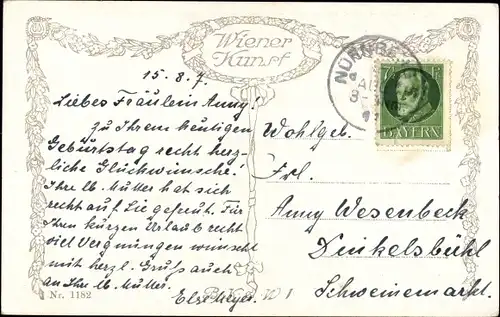 Wiener
Kunst
15. 8. 7.
Liebes Fräulein Anny!
Zu Ihrem heutigen
Geburtstag recht herz-
liche Glückwünsche!
Ihre lb. Mutter hat sich
recht auf Sie gefreut. Für
Ihren kurzen Urlaub recht
viel Vergnügen wünscht
mit herzl. Gruß auch
an Ihre lb. Mutter.
Else Meyer.
Nr. 1182
B.K.W.I
NÜRNB
BAYERN
Wohlgeb.
Frl.
Anny Wesenbeck
Dinkelsbühl
Schweinemarkt.